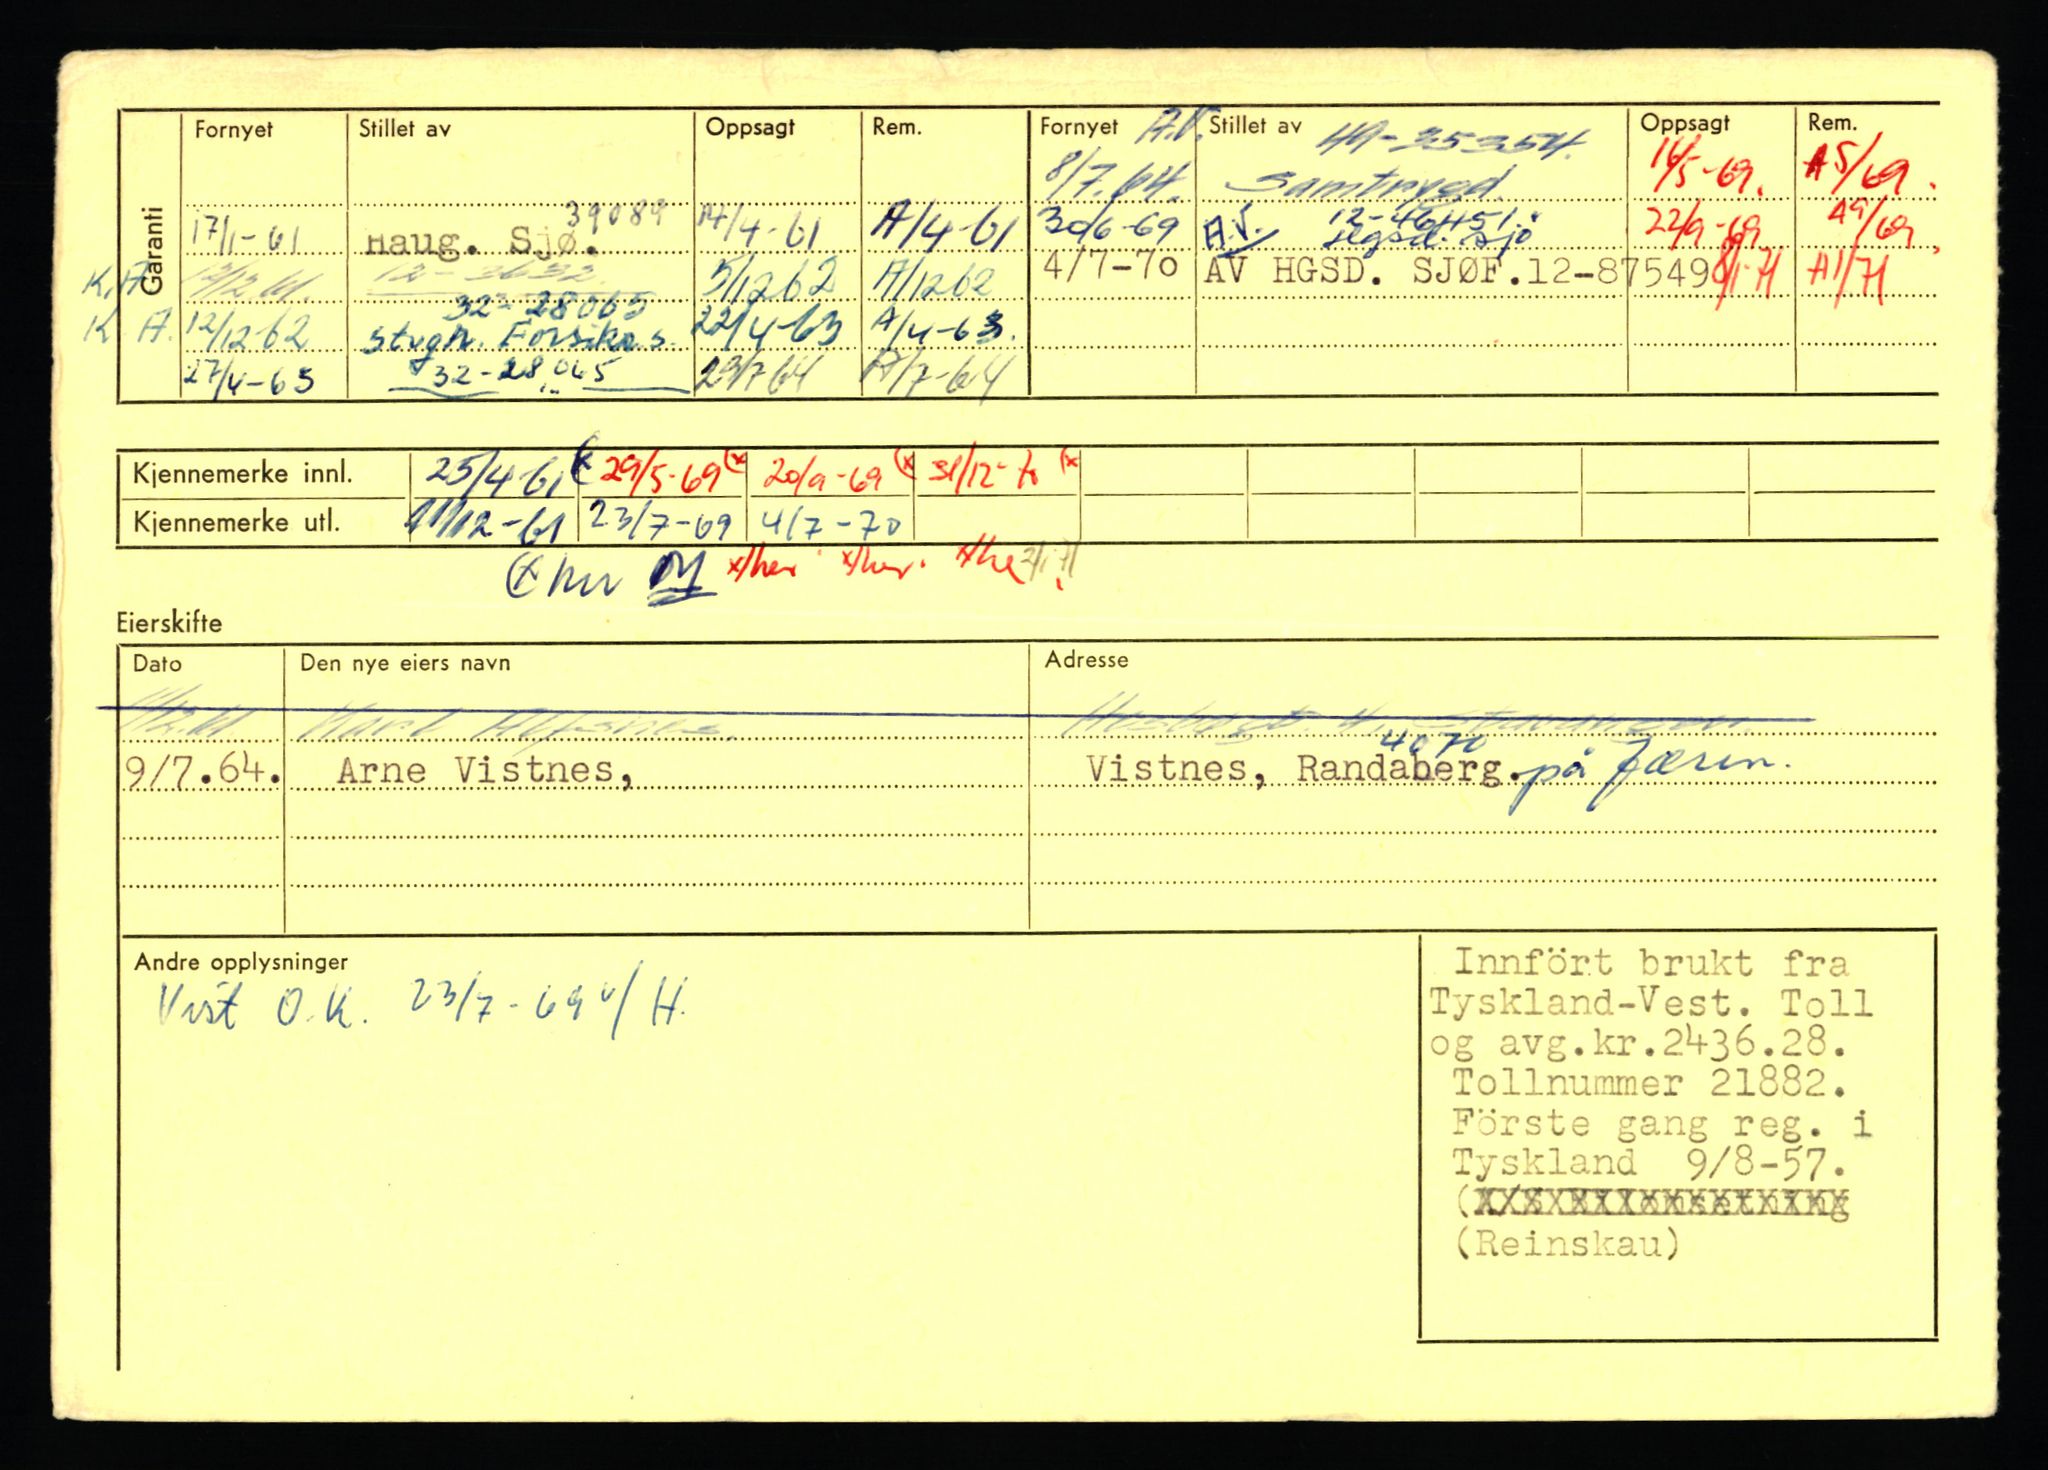 Garanti
Fornyet Stillet av Oppsagt Rem. Fornyet A.V. Stillet av Oppsagt Rem.
49-35354.
8/7.64. Samtrygd. 16/5-69. A5/69.
39089
17/1-61 Haug. Sjø. 14/4-61 A/4-61 30/6-69 A.V. 12-46451. Hgsd. Sjø 22/9-69 A9/69.
K.A 12-3632. 5/12 62 A/12 62 4/7-70 AV HGSD. SJØF.12-87549 8/1-71 A1/71
32-28065
K A. 12/12 62 Stvgh. Forsikr.s. 22/4-63 A/4-63.
27/4-63 32-28065 23/7 64 A/7-64
Kjennemerke innl. 25/4-61 (x 29/5-69 (x 20/9-69 (x 31/12-70 (x
Kjennemerke utl. 11/12-61 23/7-69 4/7-70
(x her x/her x/her. x/he 2/1-71
Eierskifte
Dato Den nye eiers navn Adresse
4070
9/7.64. Arne Vistnes, Vistnes, Randaberg. på Jæren.
Andre opplysninger
Vist O.K. 23/7-69 v/ H.
Innfört brukt fra
Tyskland-Vest. Toll
og avg.kr.2436.28.
Tollnummer 21882.
Förste gang reg. i
Tyskland 9/8-57.
(Reinskau)